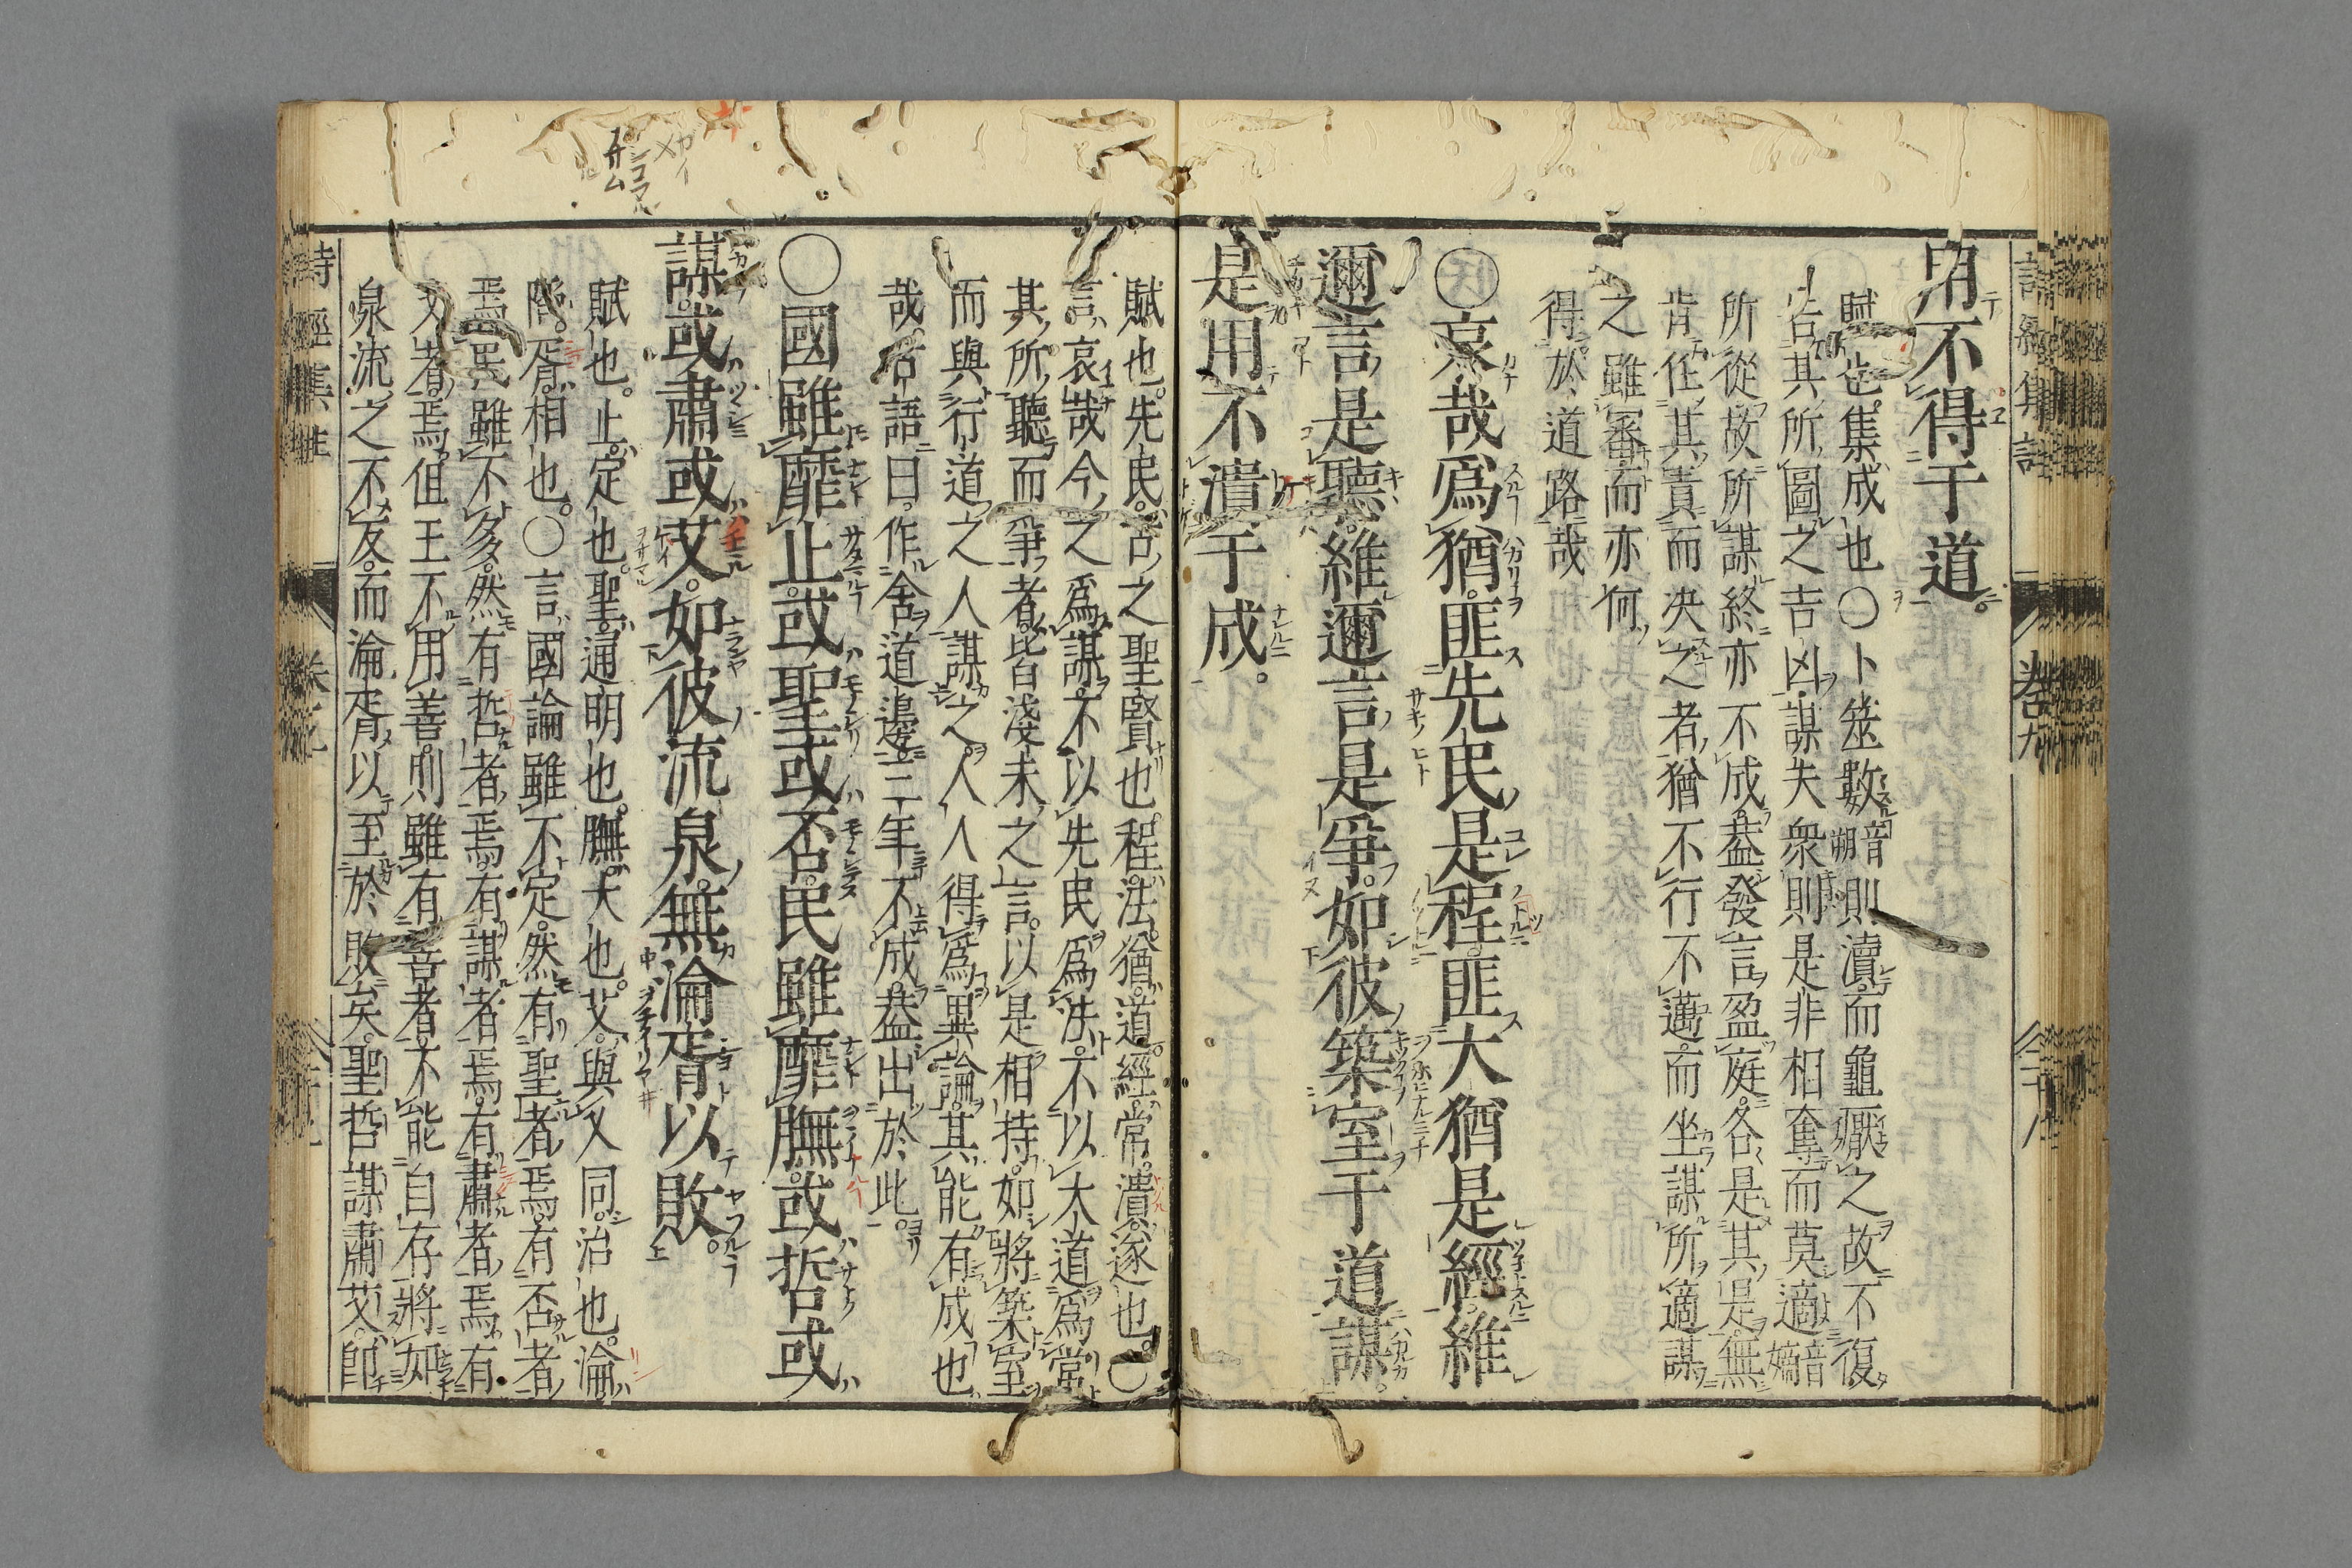 用不得于道
賦也集成也○卜筮數音朔則瀆而龜厭之故不復
告其所圖之吉凶謀夫衆則是非相奪而莫適音嫡
所從故所謀終亦不成蓋發言盈庭各是其是無
肯任其責而決之者猶不行不邁而坐謀所適謀
之雖審而亦何
得於道路哉
○哀哉爲猶匪先民是程匪大猶是經維
邇言是聽維邇言是爭如彼築室于道謀
是用不潰于成
賦也先民古之聖賢也程法猶道經常潰遂也○
言哀哉今之爲謀不以先民爲法不以大道爲常
其所聽而爭者皆淺末之言以是相持如將築室
而與行道之人謀之人人得爲異論其能有成也
哉古語曰作舍道邊三年不成蓋出於此
○國雖靡止或聖或否民雖靡膴或哲或
謀或肅或艾如彼流泉無淪胥以敗
賦也止定也聖通明也膴大也艾與乂同治也淪
陷胥相也○言國論雖不定然有聖者焉有否者
焉民雖不多然有哲者焉有謀者焉有肅者焉有
艾者焉但王不用善則雖有善者不能自存將如
泉流之不反而淪胥以至於敗矣聖哲謀肅艾卽
詩經集註
卷九